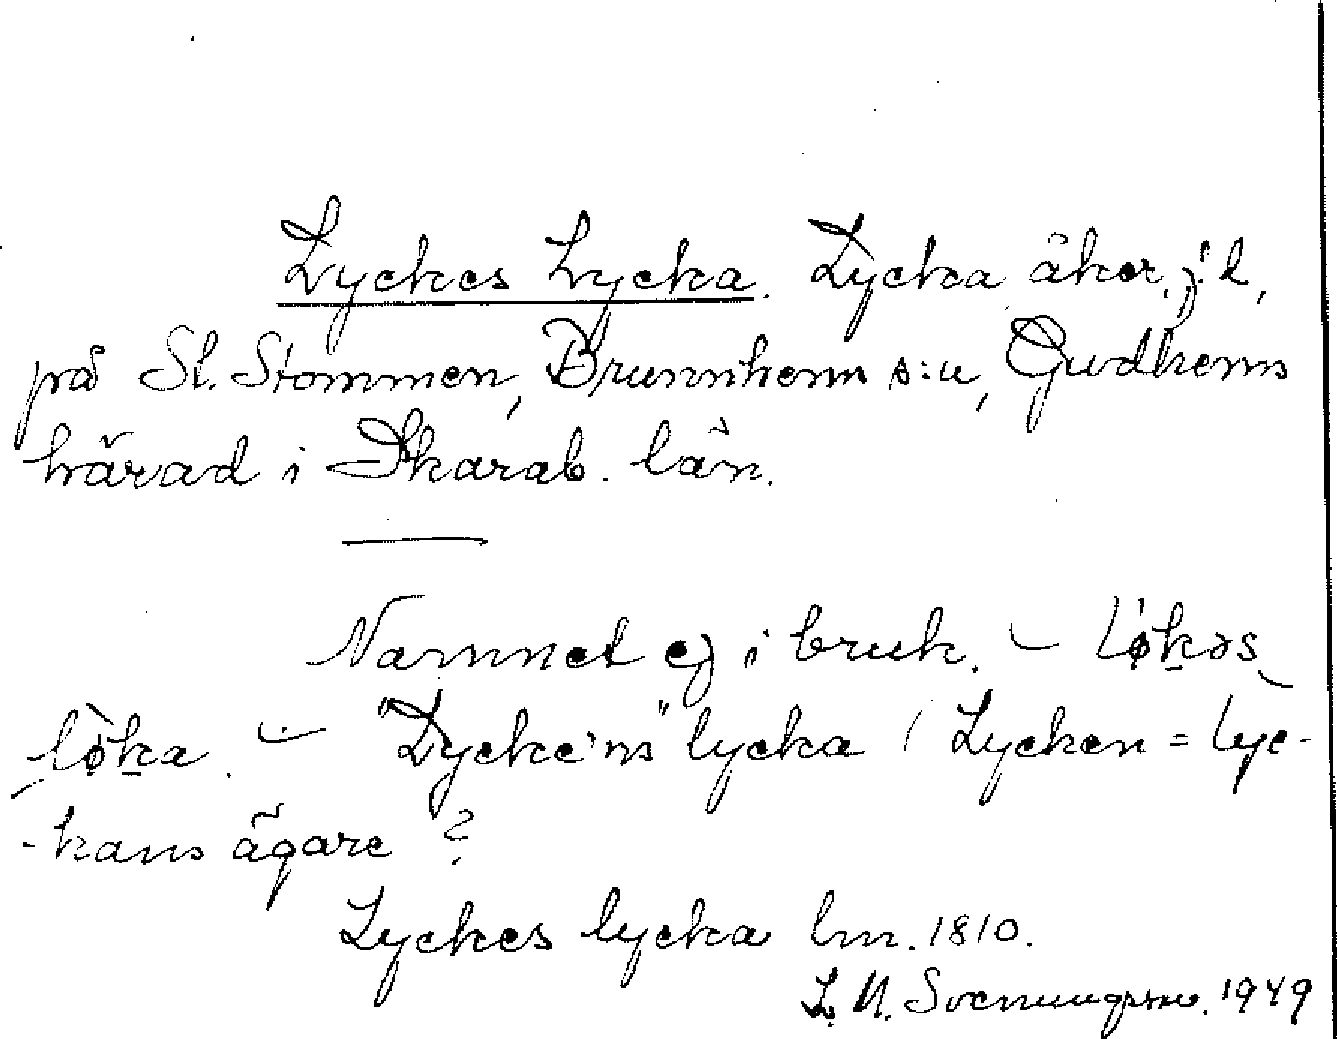 Lyckes Lycka. Lycka åker, f.l,
på St. Stommen, Brunnhem s:n, Gudhems
härad i Skarab. län.
Namnet ej i bruk. – løkəs
løka. – "Lycke'ns" lycka (Lycken = lyc-
-kans ägare?
Lyckes lycka lm. 1810.
L. N. Svenungsson. 1949